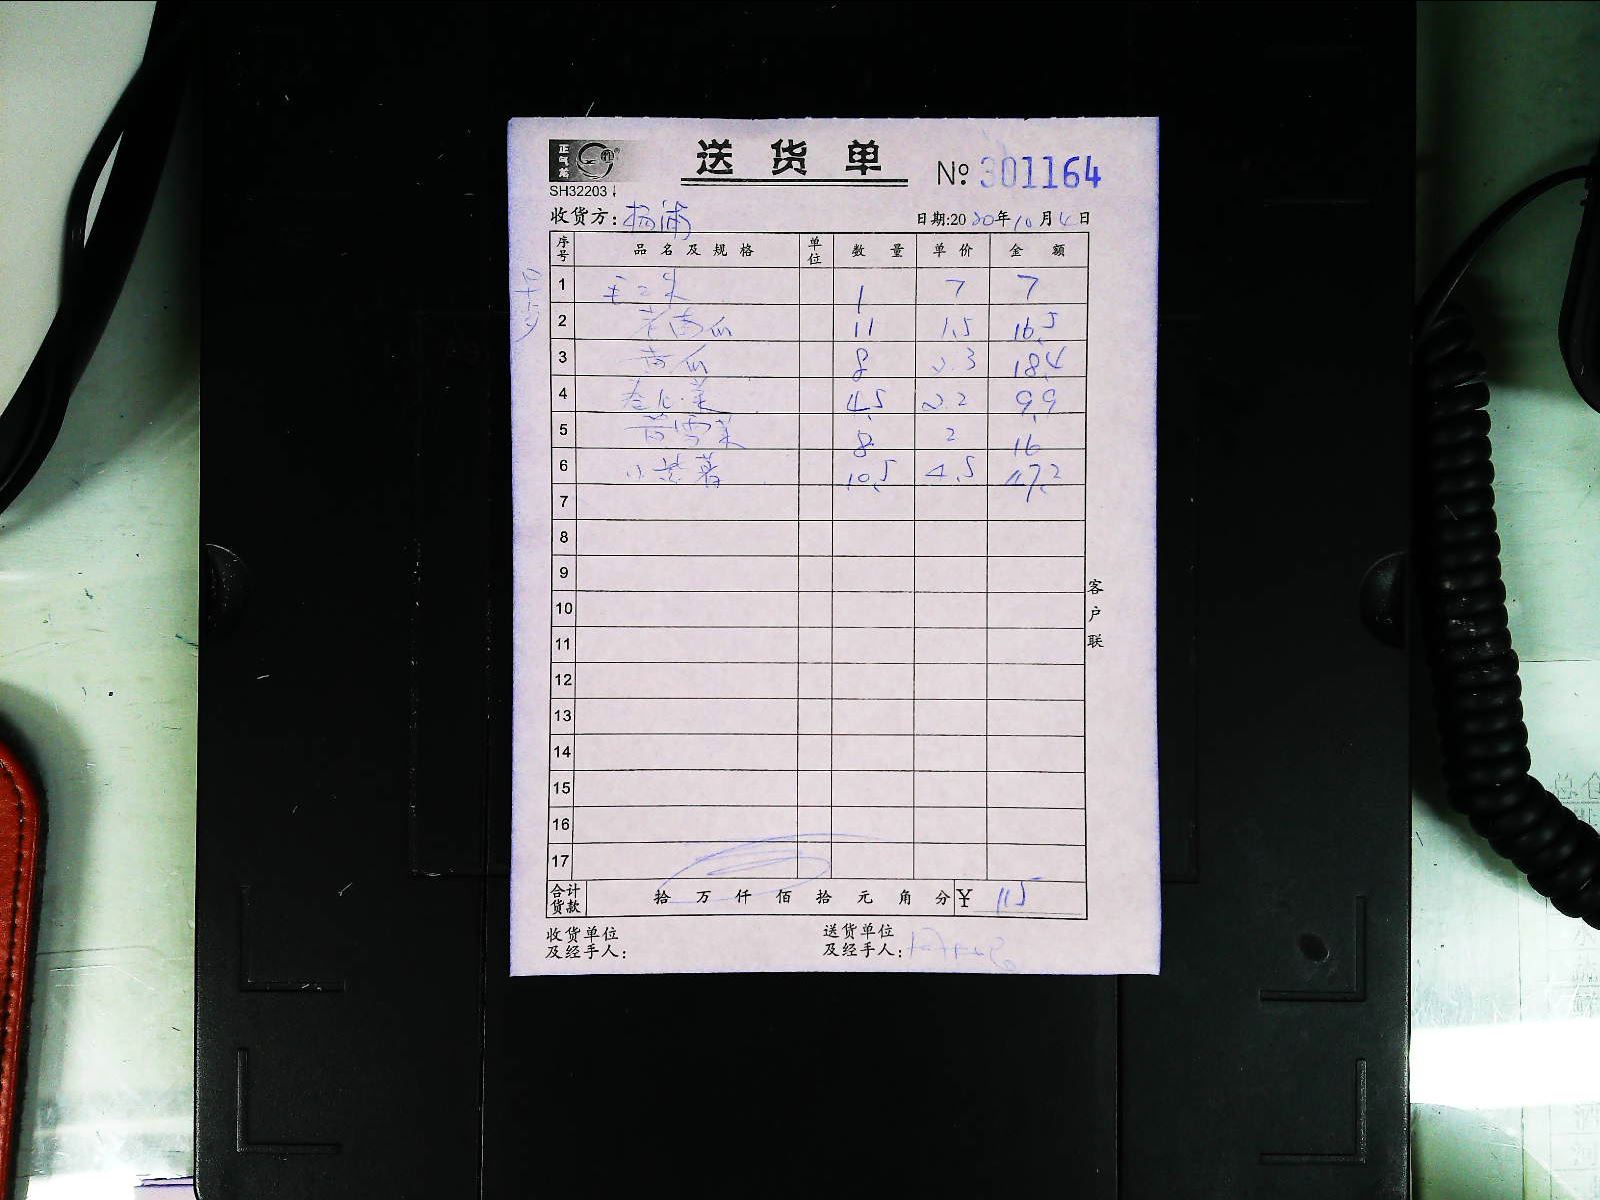 正气鸿
送货单 № 301164
SH32203
收货方：杨浦 日期:2020年10月4日
序号 品名及规格 单位 数量 单价 金额
1 毛豆米 1 7 7
2 老南瓜 11 1.5 16.5
3 黄瓜 8 2.3 18.4
4 卷心菜 4.5 2.2 9.9
5 8 2 16
6 小紫薯 10.5 4.5 47.2
7
8
9
10
11
12
13
14
15
16
17
合计货款 拾 万 仟 佰 拾 元 角 分 ¥ 115
收货单位及经手人： 送货单位及经手人：
客户联